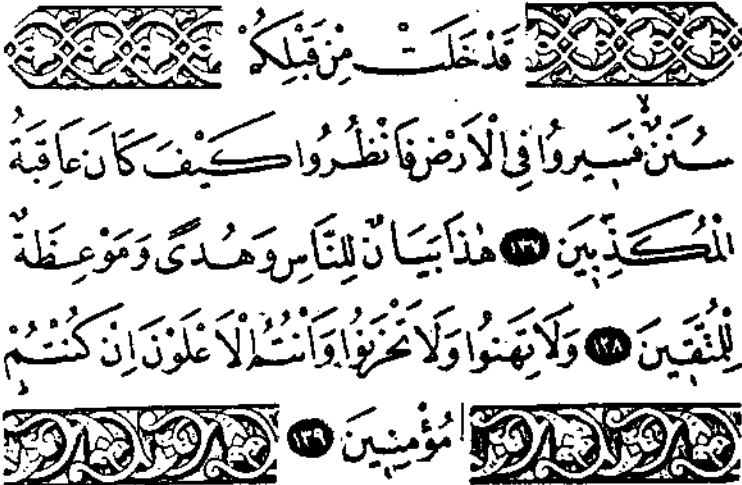 قَدْ خَلَتْ مِنْ قَبْلِكُمْ
سُنَنٌۙ فَسٖيرُوا فِي الْاَرْضِ فَانْظُرُوا كَيْفَ كَانَ عَاقِبَةُ
الْمُكَذِّبٖينَ ١٣٧ هٰذَا بَيَانٌ لِلنَّاسِ وَهُدًى وَمَوْعِظَةٌ
لِلْمُتَّقٖينَ ١٣٨ وَلَا تَهِنُوا وَلَا تَحْزَنُوا وَاَنْتُمُ الْاَعْلَوْنَ اِنْ كُنْتُمْ
مُؤْمِنٖينَ ١٣٩